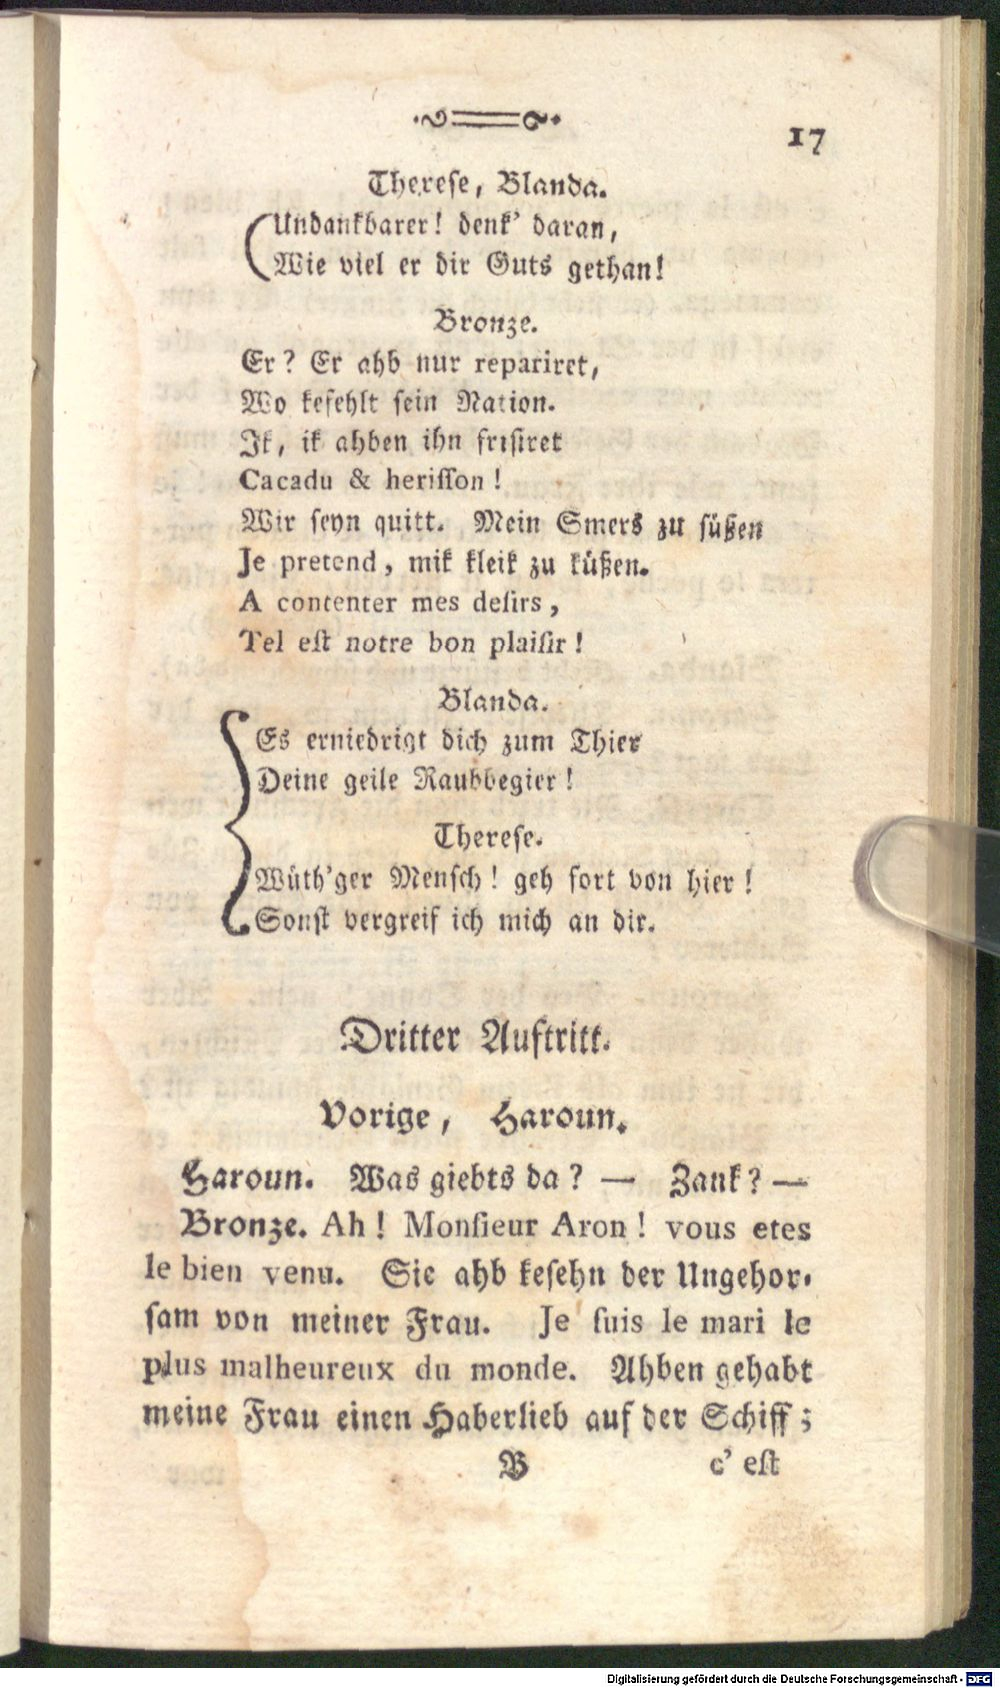 17
Therese, Blanda.
Undankbarer! denk' daran,
Wie viel er dir Guts gethan!
Bronze.
Er? Er ahb nur repariret,
Wo kefehlt sein Nation.
Ik, ik ahben ihn frisiret
Cacadu & herisson!
Wir seyn quitt. Mein Smers zu süßen
Je pretend, mik kleik zu küßen.
A contenter mes desirs,
Tel est notre bon plaisir!
Blanda.
Es erniedrigt dich zum Thier
Deine geile Raubbegier!
Therese.
Wüth'ger Mensch! geh fort von hier!
Sonst vergreif ich mich an dir.
Dritter Auftritt.
Vorige, Haroun.
Haroun. Was giebts da? — Zank? —
Bronze. Ah! Monsieur Aron! vous etes
le bien venu. Sie ahb kesehn der Ungehor-
sam von meiner Frau. Je suis le mari le
plus malheureux du monde. Ahben gehabt
meine Frau einen Haberlieb auf der Schiff;
B c' est
Digitalisierung gefördert durch die Deutsche Forschungsgemeinschaft - DFG